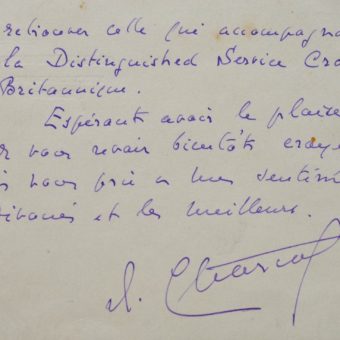 retrouver celle qui accompagna
la Distinguished Service Cro
Britannique.
Espérant avoir le plaisi
vous revoir bientôt, croye
vous prie a mes sentim
dévoués et les meilleurs.
J. Charcot